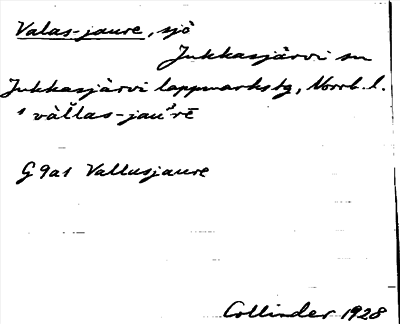 Valas-jaure, sjö
Jukkasjärvi sn
Jukkasjärvi lappmarkstg, Norrb. l.
G 9a1 Vallusjaure
Collinder 1928